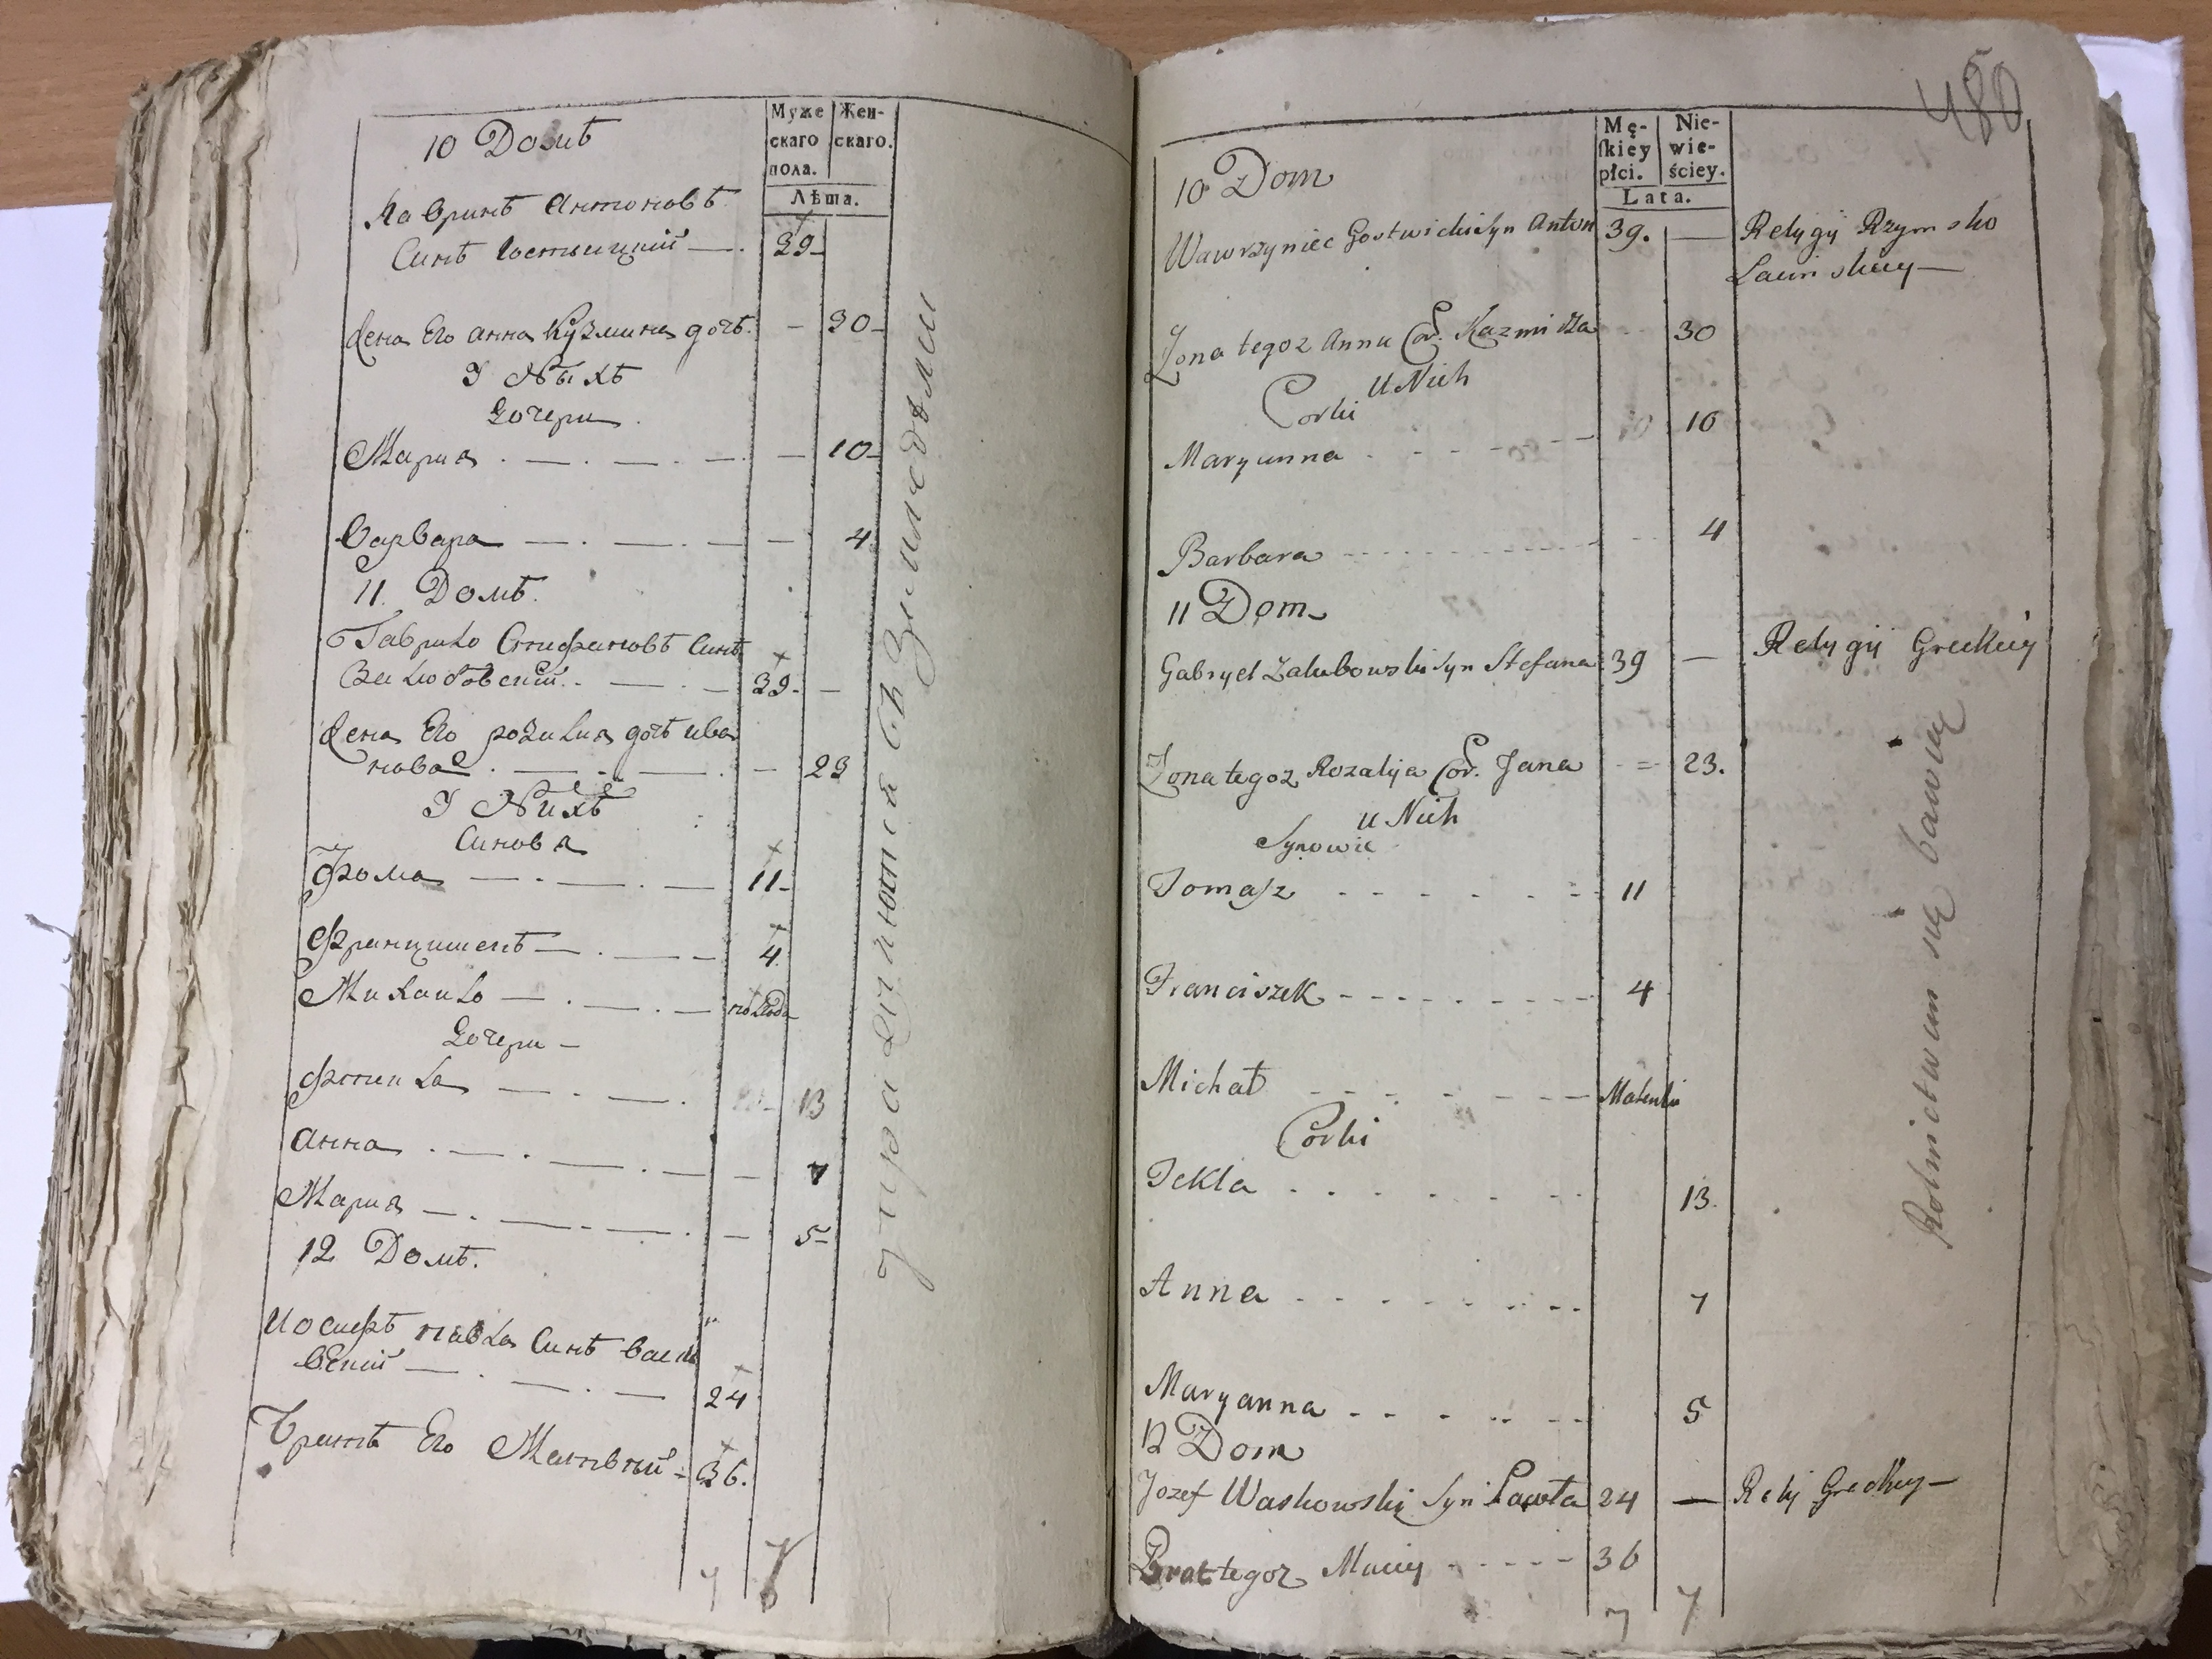 10 Домъ
Муже
скаго
пола.
Жен-
скаго.
Лѣта.
Лавринъ Антоновъ
Синъ Гоствицкий — . 39
Жена Его Анна Кузмина дочъ. - 30
У Ныхъ
Дочери
Мария . — . — . — . — 10
Варвара — . — . — — 4
11. Домъ.
Гаврило Стифановъ Синъ
Залюбовский . — . — 39. —
Жена Его Розалия дочъ ива
нова . — . — . — 23
У Нихъ
Синовя
Фома — . — . — 11
Францишекъ — . — 4
Михаило — . — . — полгода
Дочери —
Фтекла — . — . 13
Анна . — . — . — — 7
Мария — . — . — . — 5
12 Домъ.
Иосифъ павла Синъ Васко
вский — . — . — 24
Братъ Его Матвѣий - 36.
7
упражняются въ Земледѣлии
480
10 Dom
Mę-
ſkiey
płci.
Nie-
wie-
ściey.
Lata.
Wawrzyniec Gostwicki Syn Anton 39. — Relygij Rzymsko
Łacinskiey —
Zona tegoz Anna Cor. Kazmirza - - 30
U Nich
Corki
Maryanna - - - - - 10
Barbara - - - - - - - 4
11 Dom
Gabryel Zalubowski Syn Stefana 39 — Relygij Greckiey
Zona tegoz Rozalija Cor. Jana - = 23.
u Nich
Synowie
Tomaſz - - - - - - 11
Franciszek - - - - - - 4
Michał - - - - - - Malenki
Corki
Tekla - - - - - - 13.
Anna - - - - - - - 7
Maryanna - - - - - 5
12 Dom
Jozef Waskowski Syn Pawła 24 — Relij Greckiey —
Brat tegoz Maciey - - - - - 36
7 7
Rolnictwem się bawią